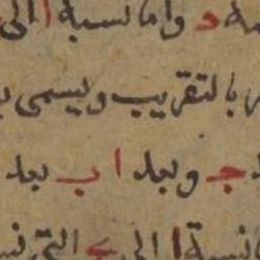 د واما نسبة ا الى
بالتقريب ويسمى
ج وبعد ا ب بعد
نسبة ا الى